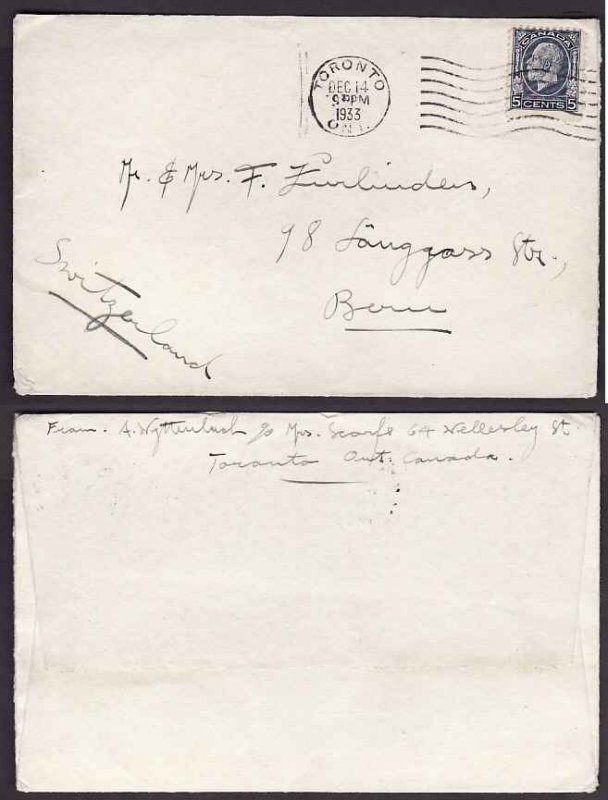 CANADA
5 CENTS 5
TORONTO
DEC 14
9 PM
1933
ONT.
Mr. & Mrs. F. Zurlinden,
98 Länggass Str.,
Bern
Switzerland
From. A. Wyttenbach c/o Mrs. Scarfe 64 Wellesley St
Toronto Ont. Canada.